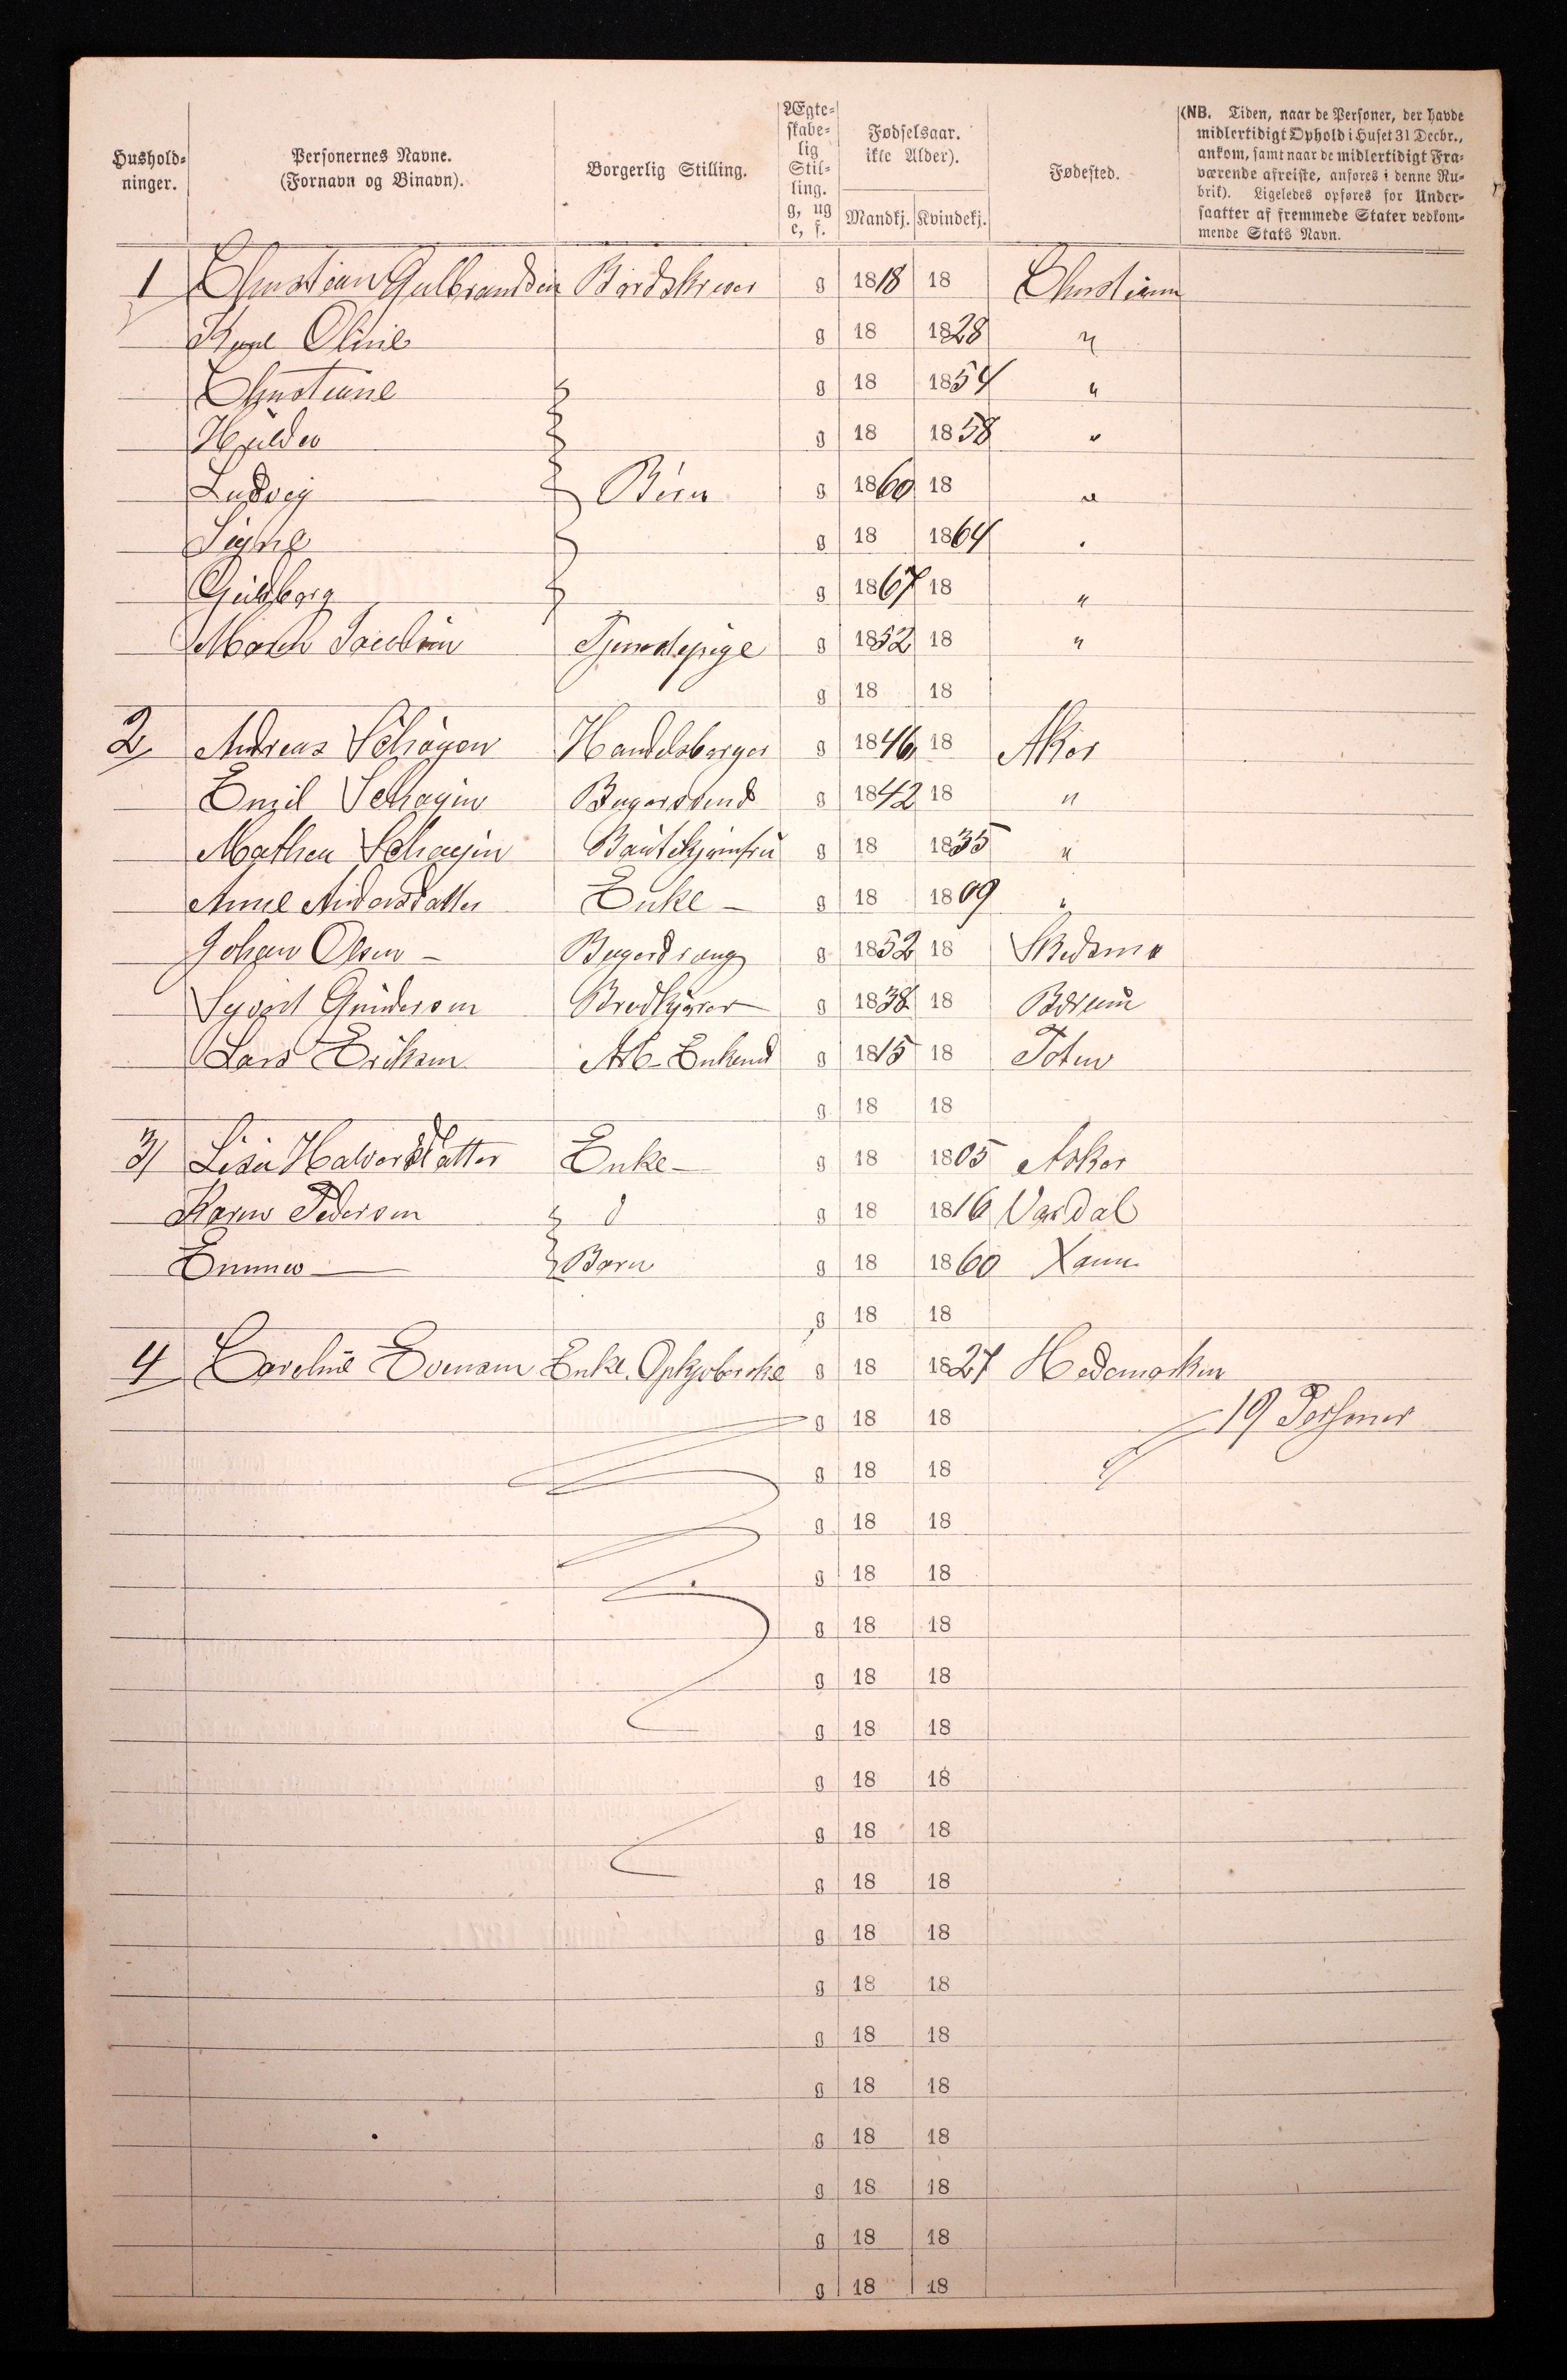 Hushold-
ninger.
Personernes Navne.
(Fornavn og Binavn).
Borgerlig Stilling.
Ægte-
skabe-
lig
Stil-
ling.
g, ug
e, f.
Fødselsaar.
ikke Alder).
Mandkj. Kvindekj.
Fødested.
(NB. Tiden, naar de Personer, der havde
midlertidigt Ophold i Huset 31 Decbr.,
ankom, samt naar de midlertidigt Fra-
værende afreiste, anføres i denne Ru-
brik). Ligeledes opføres for Under-
saatter af fremmede Stater vedkom-
mende Stats Navn.
1 Christian Gulbrandsen g 1818 18
Oline g 18 1828 "
Christiane g 18 1854 "
Hulda g 18 1858 "
Ludvig Börn g 1860 18 "
Signe g 18 1864 "
g 1867 18 "
Tjenestepige g 1852 18 "
g 18 18
2 Andreas Schøyen Handelsborger g 1846 18 Aker
Emil Schøyen Bagersvend g 1842 18 "
Mathea Schøyen g 18 1835 "
Anne Andersdatter Enke - g 18 1809 "
Johan Olsen - Bagerdreng g 1852 18 Skedsmo
Syvert Gundersen Brødkjører g 1838 18 Bærum
Lars Eriksen Arb. Enkemd g 1815 18 Toten
g 18 18
3/ Lisa Halvorsdatter Enke - g 18 1805 Asker
Karen Pedersen d g 18 1816 Vardal
Emma — Barn g 18 1860 Xania
g 18 18
4 Caroline Evensen Enke. Opkjøberske g 18 1827 Hedemarken
g 18 18 19 Personer
g 18 18
g 18 18
g 18 18
g 18 18
g 18 18
g 18 18
g 18 18
g 18 18
g 18 18
g 18 18
g 18 18
g 18 18
g 18 18
g 18 18
g 18 18
g 18 18
g 18 18